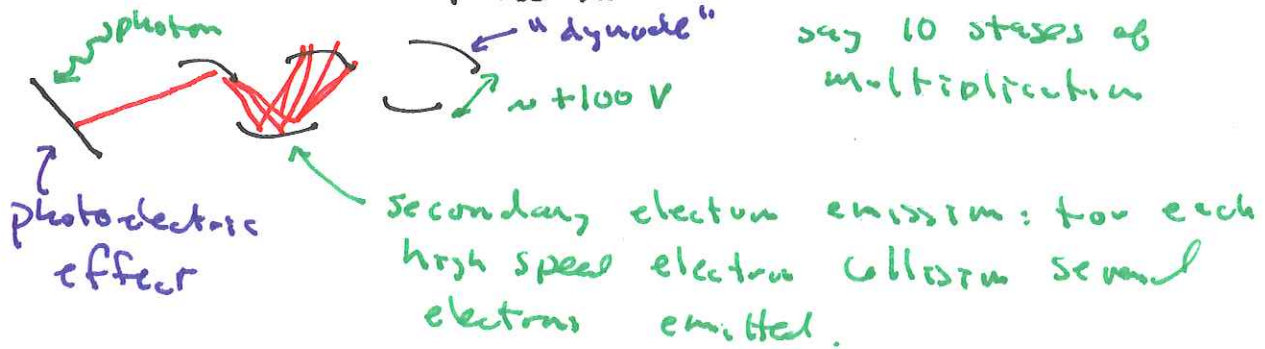 photon
"dynode"
say 10 stages of
multiplication
~ +100 V
photoelectric
effect
secondary electron emission: for each
high speed electron collision several
electrons emitted.